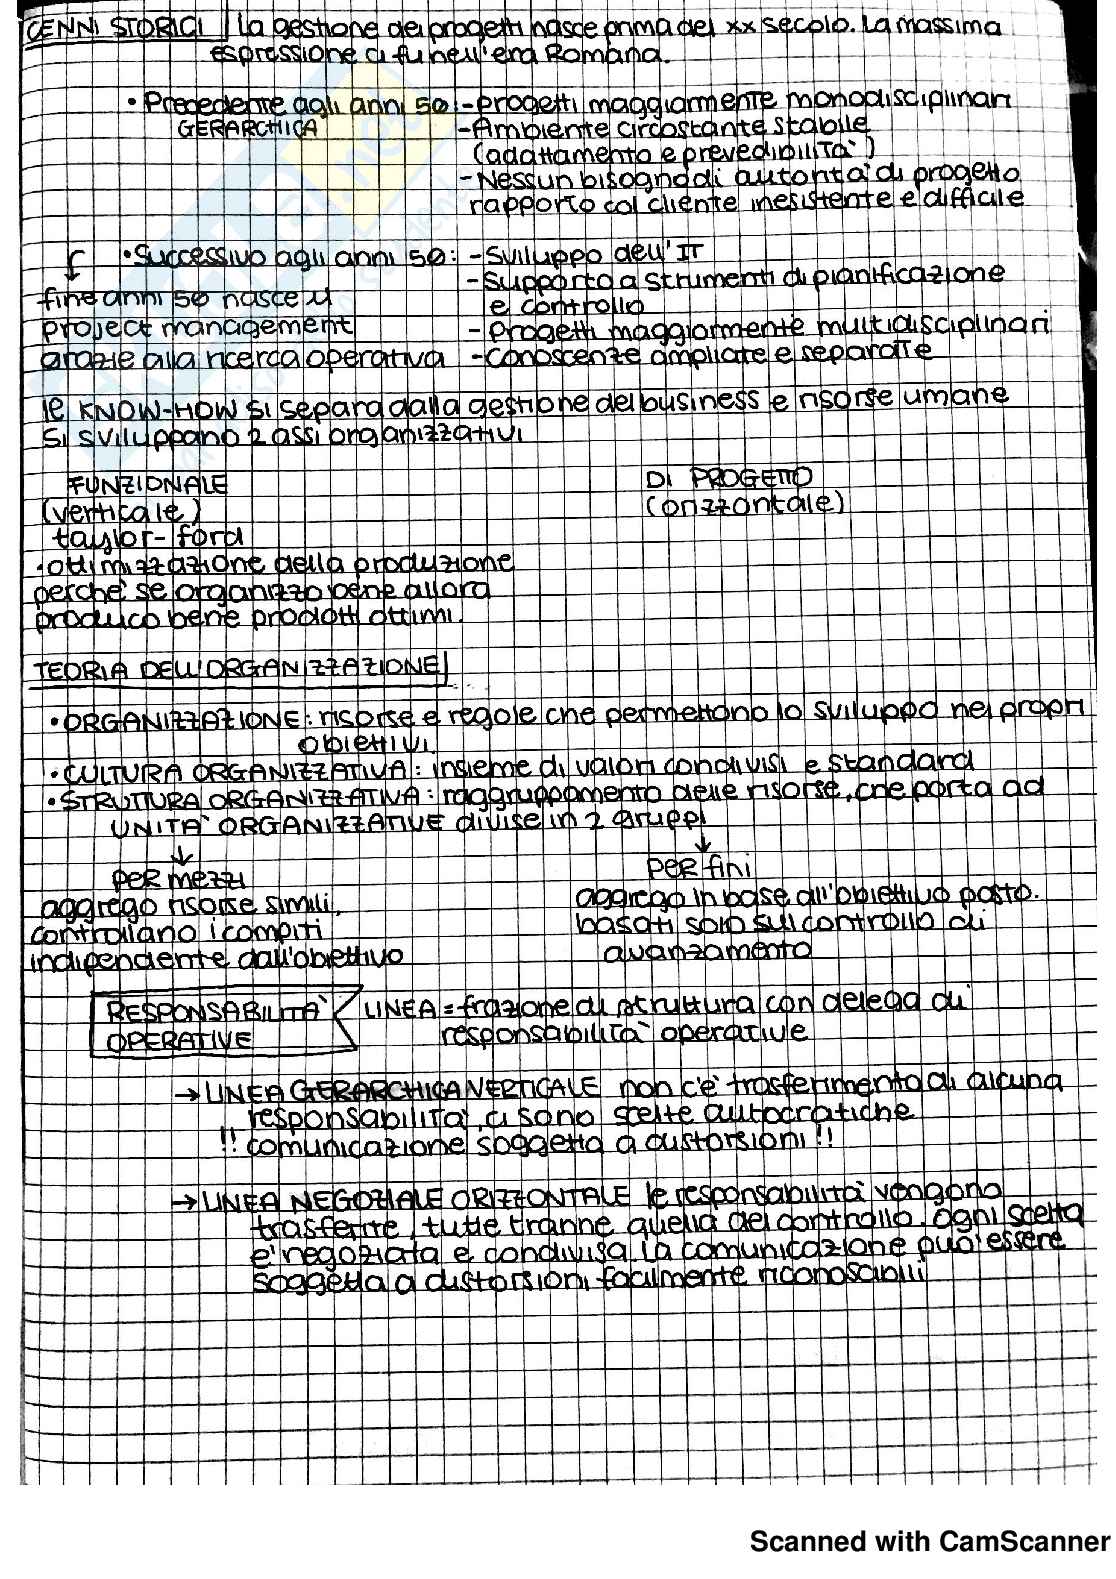 CENNI STORICI La gestione dei progetti nasce prima del XX secolo. La massima
espressione ci fu nell'era Romana.
• Precedente agli anni 50: - progetti maggiormente monodisciplinari
GERARCHICA - Ambiente circostante stabile
(adattamento e prevedibilità)
- Nessun bisogno di autorità di progetto
rapporto col cliente inesistente e difficile
• Successivo agli anni 50: - Sviluppo dell'IT
- Supporto a strumenti di pianificazione
e controllo
fine anni 50 nasce il
project management - progetti maggiormente multidisciplinari
grazie alla ricerca operativa - conoscenze ampliate e separate
le KNOW-HOW si separa dalla gestione del business e risorse umane
Si sviluppano 2 assi organizzativi
FUNZIONALE DI PROGETTO
(verticale) (orizzontale)
taylor-ford
• ottimizzazione della produzione
perchè se organizzo bene allora
produco bene prodotti ottimi.
TEORIA DELL'ORGANIZZAZIONE
• ORGANIZZAZIONE: risorse e regole che permettono lo sviluppo nei propri
obiettivi.
• CULTURA ORGANIZZATIVA: insieme di valori condivisi e standard
• STRUTTURA ORGANIZZATIVA: raggruppamento delle risorse, che porta ad
UNITÀ ORGANIZZATIVE divise in 2 gruppi
per mezzi per fini
aggrego risorse simili, aggrego in base all'obiettivo posto.
controllano i compiti basati solo sul controllo di
indipendente dall'obiettivo avanzamento
RESPONSABILITÀ LINEA = frazione di struttura con delega di
OPERATIVE responsabilità operative
→ LINEA GERARCHICA VERTICALE non c'è trasferimento di alcuna
responsabilità, ci sono scelte autocratiche
!! comunicazione soggetta a distorsioni !!
→ LINEA NEGOZIALE ORIZZONTALE le responsabilità vengono
trasferite, tutte tranne quella del controllo. Ogni scelta
è negoziata e condivisa. La comunicazione può essere
soggetta a distorsioni facilmente riconoscibili
Scanned with CamScanner